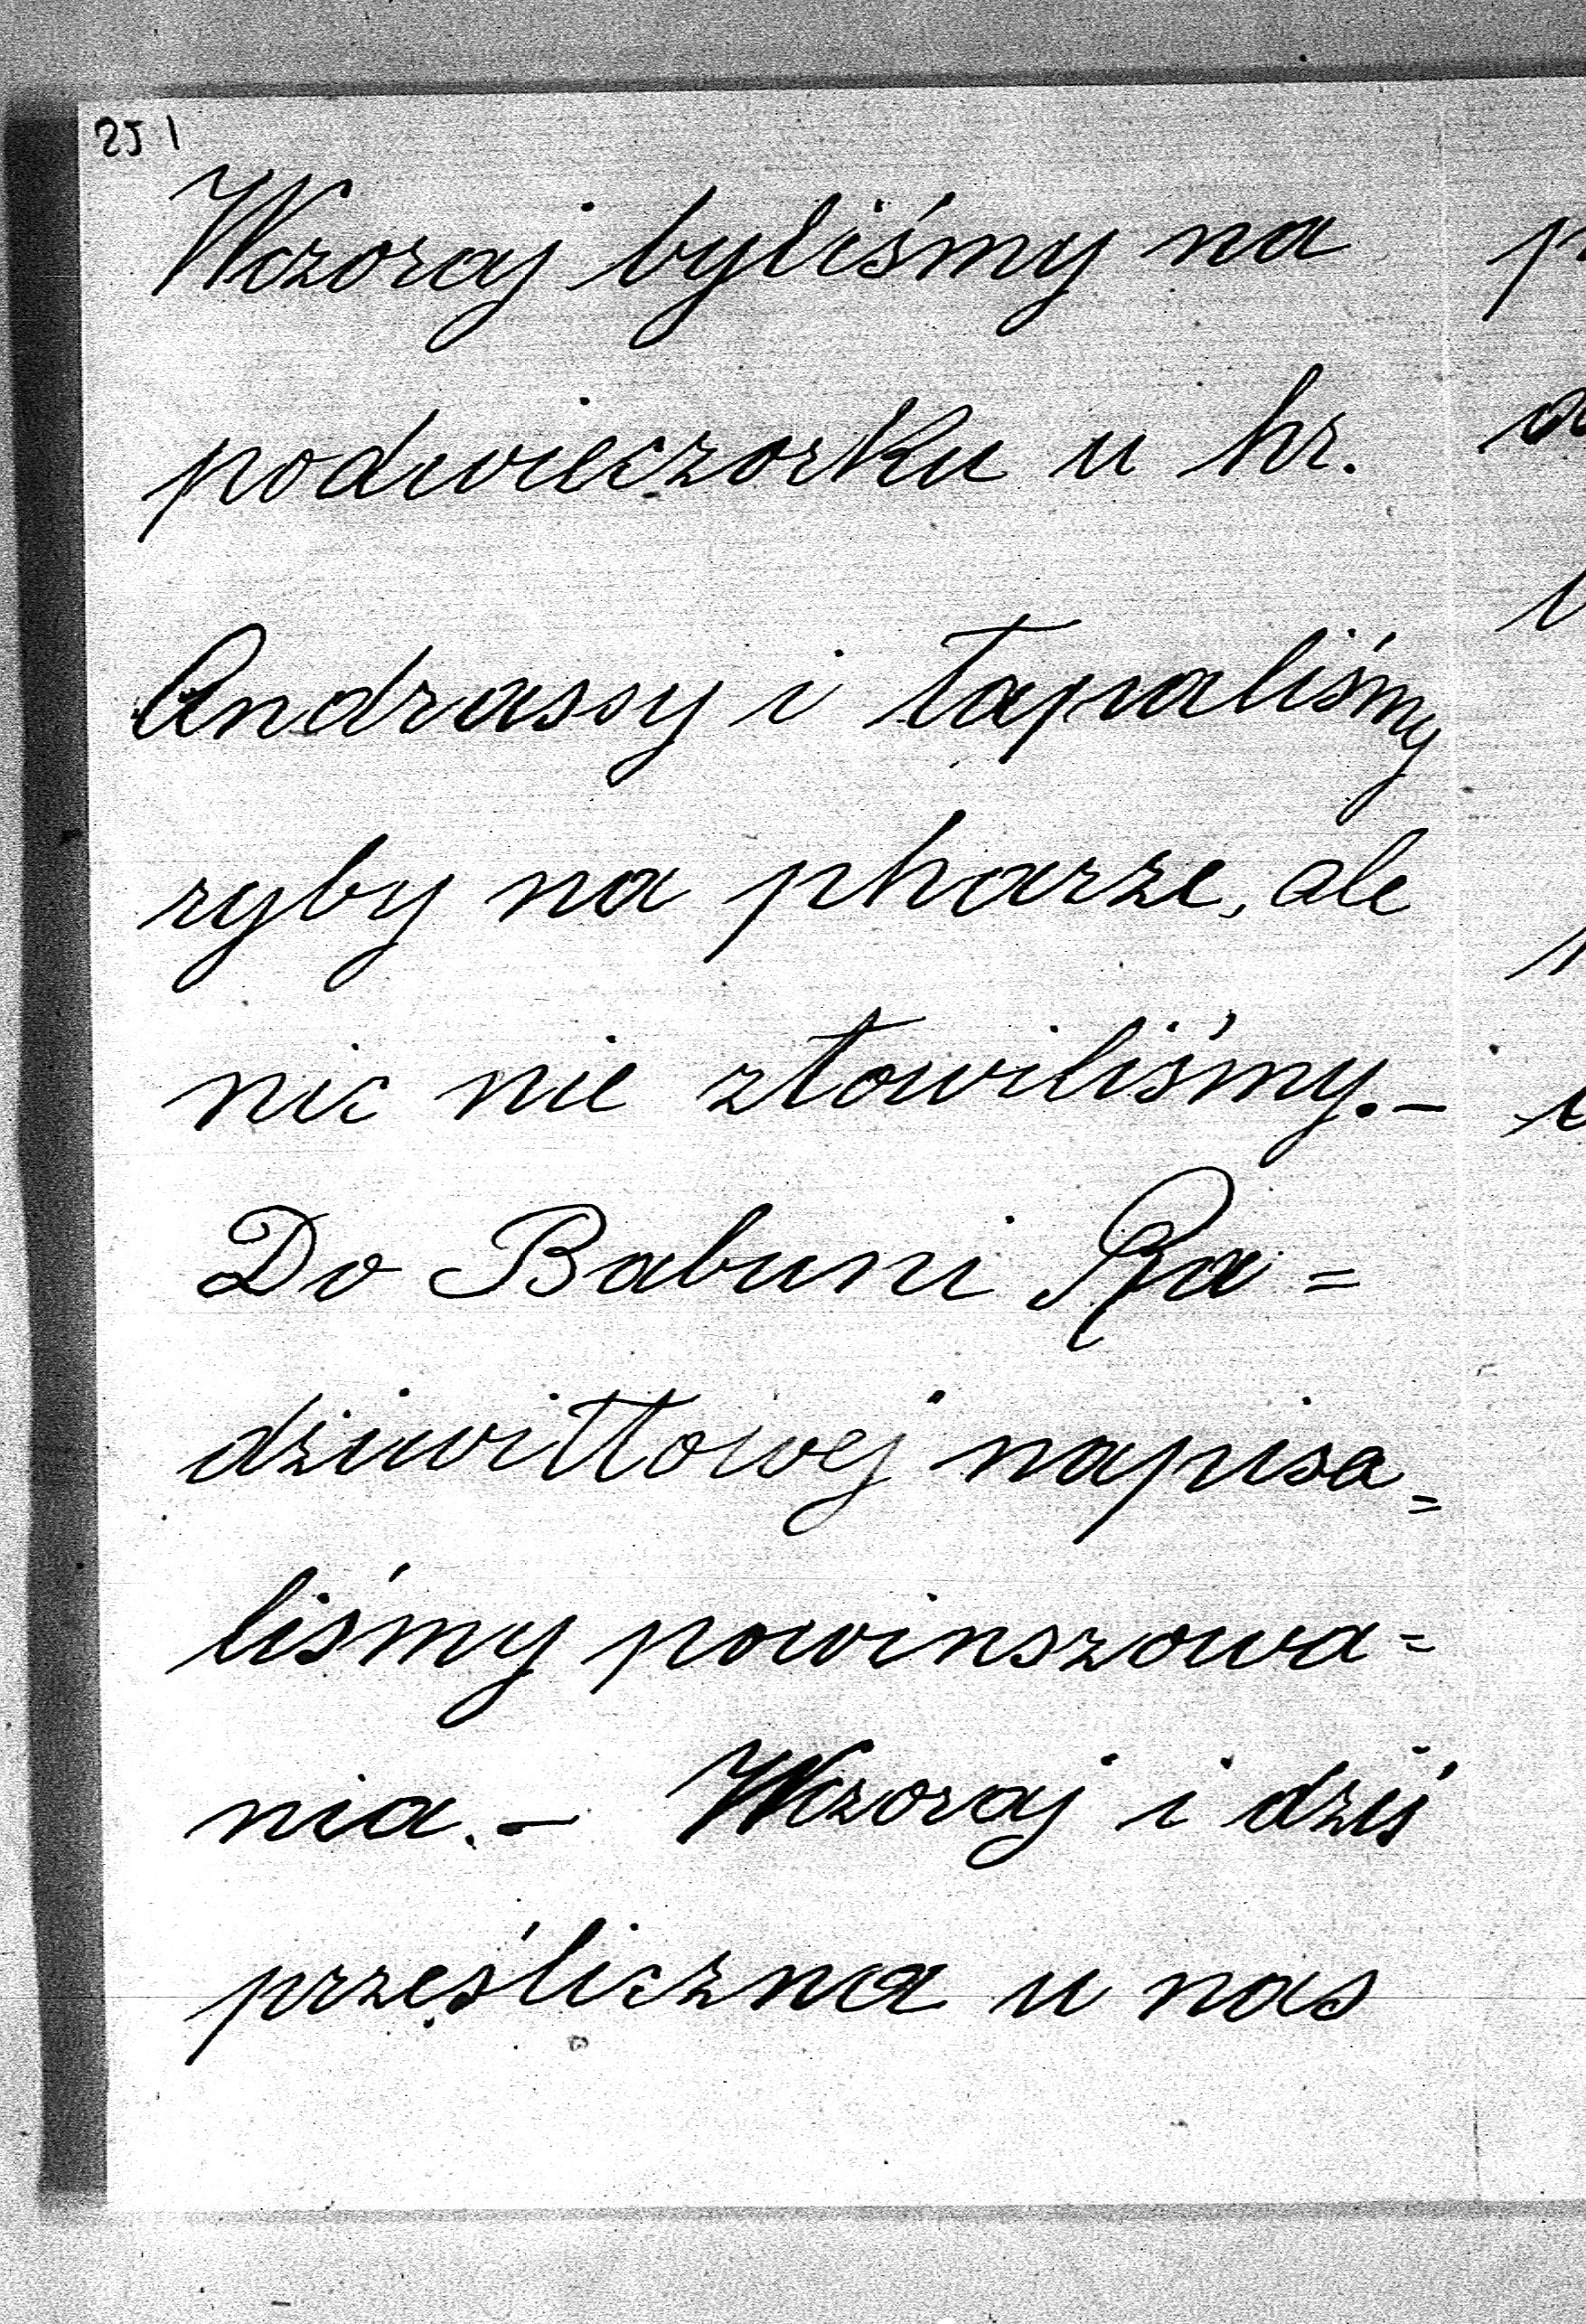 251
Wczoraj byliśmy na
podwieczorku u hr.
Andrassy i łapaliśmy
ryby na pharze, ale
nic nie złowiliśmy.-
Do Babuni Ra=
dziwiłłowej napisa=
liśmy powinszowa=
nia.- Wczoraj i dziś
prześliczna u nas